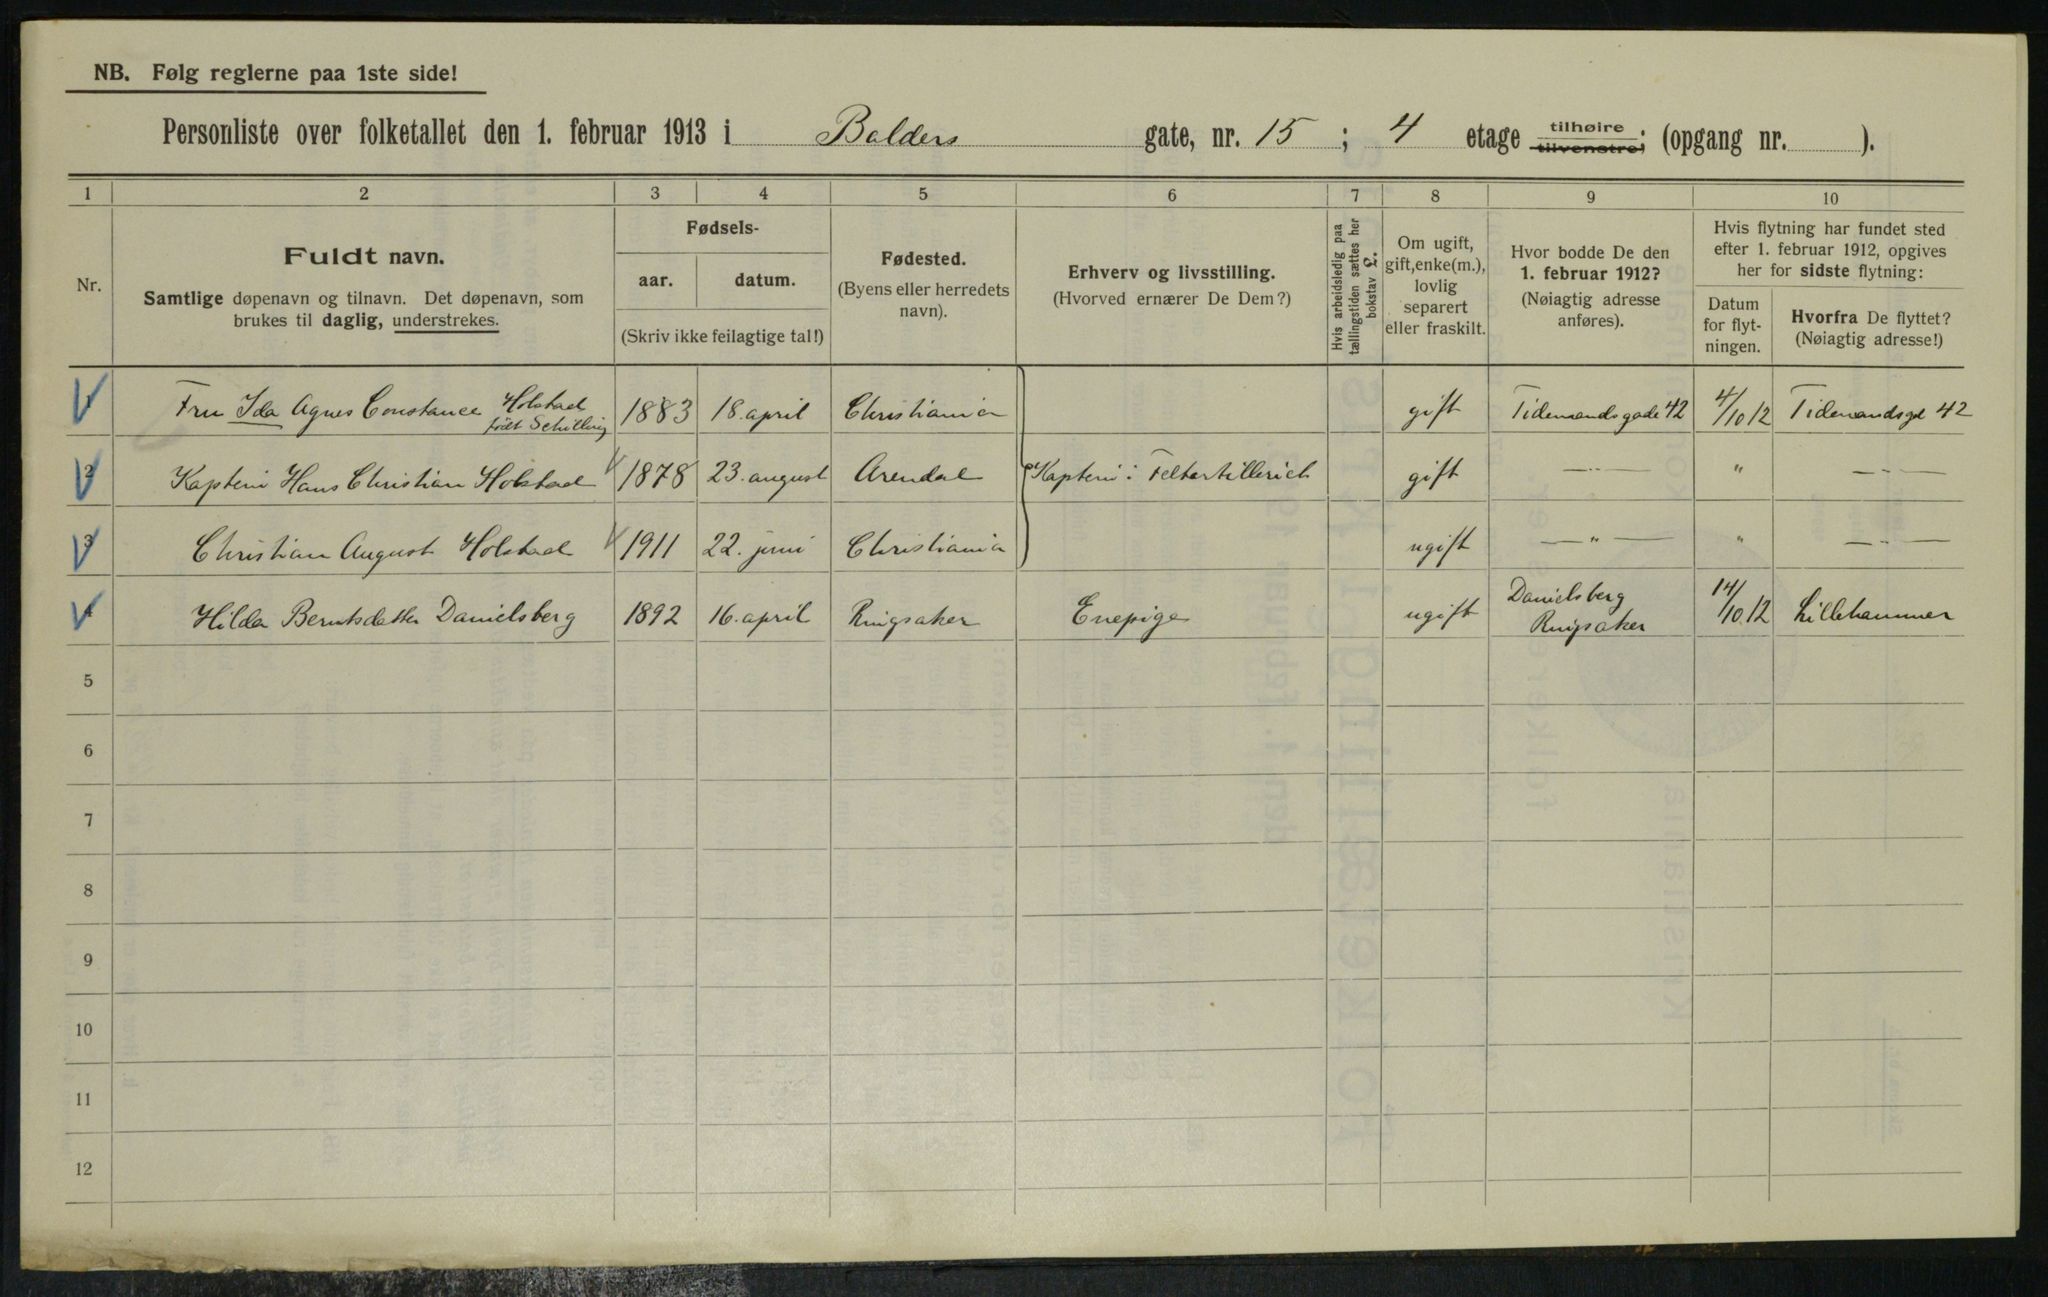 NB. Følg reglerne paa 1ste side!
Personliste over folketallet den 1. februar 1913 i Balders gate, nr. 15 ; 4 etage tilhøire tilvenstre; (opgang nr. ).
1 2 3 4 5 6 7 8 9 10
Nr.
Fuldt navn.
Samtlige døpenavn og tilnavn. Det døpenavn, som
brukes til daglig, understrekes.
Fødsels-
aar. datum.
(Skriv ikke feilagtige tal!)
Fødested.
(Byens eller herredets
navn).
Erhverv og livsstilling.
(Hvorved ernærer De Dem?)
Hvis arbeidsledig paa
tællingstiden sættes her
bokstav L.
Om ugift,
gift, enke(m.),
lovlig
separert
eller fraskilt.
Hvor bodde De den
1. februar 1912?
(Nøiagtig adresse
anføres).
Hvis flytning har fundet sted
efter 1. februar 1912, opgives
her for sidste flytning:
Datum
for flyt-
ningen.
Hvorfra De flyttet?
(Nøiagtig adresse!)
1 Fru Ida Agnes Constance Holstad født Schilling 1883 18. april Christiania gift Tidemandsgade 42 4/10 12 Tidemandsgd 42
2 Kaptein Hans Christian Holstad 1878 23. august Arendal Kaptein i Feltartilleriet gift —"— " —"—
3 Christian August Holstad 1911 22. juni Christiania ugift —"— " —"—
4 Hilda Berntsdatter Danielsberg 1892 16. april Ringsaker Enepige ugift Danielsberg Ringsaker 14/10 12 Lillehammer
5
6
7
8
9
10
11
12